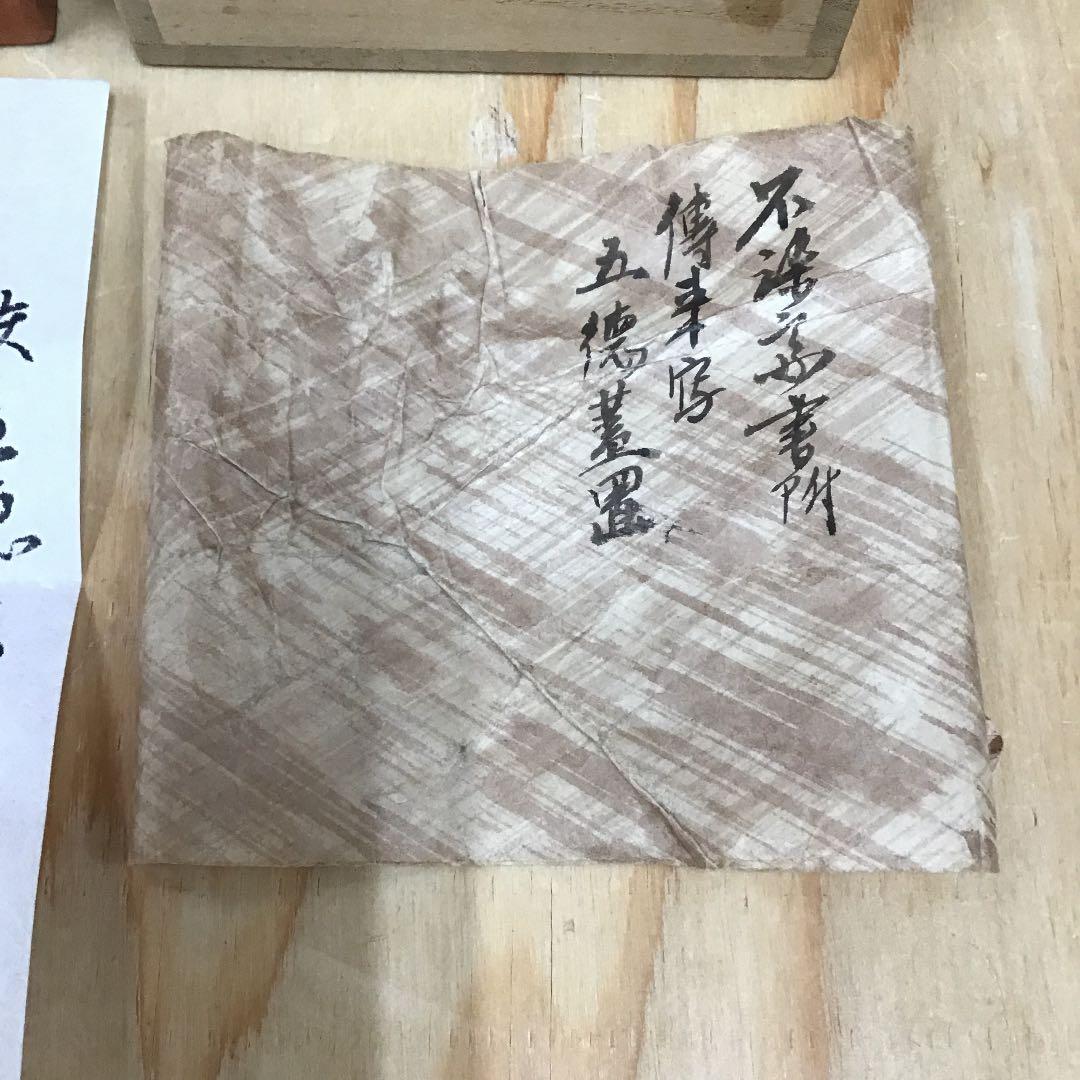 不染斎書附
傳来写
五徳蓋置